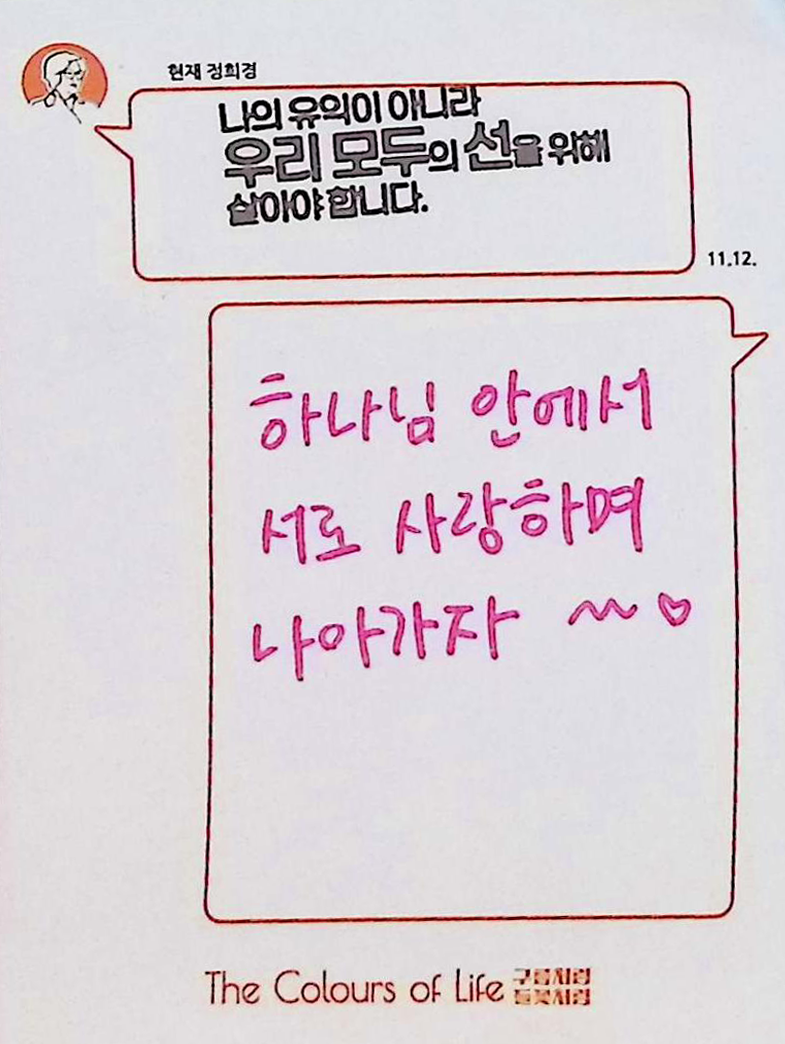 현재 정희경
나의 유익이 아니라
우리 모두의 선을 위해
살아야 합니다.
11.12.
하나님 안에서
서로 사랑하며
나아가자 ~♡
The Colours of Life 구름처럼
들꽃처럼